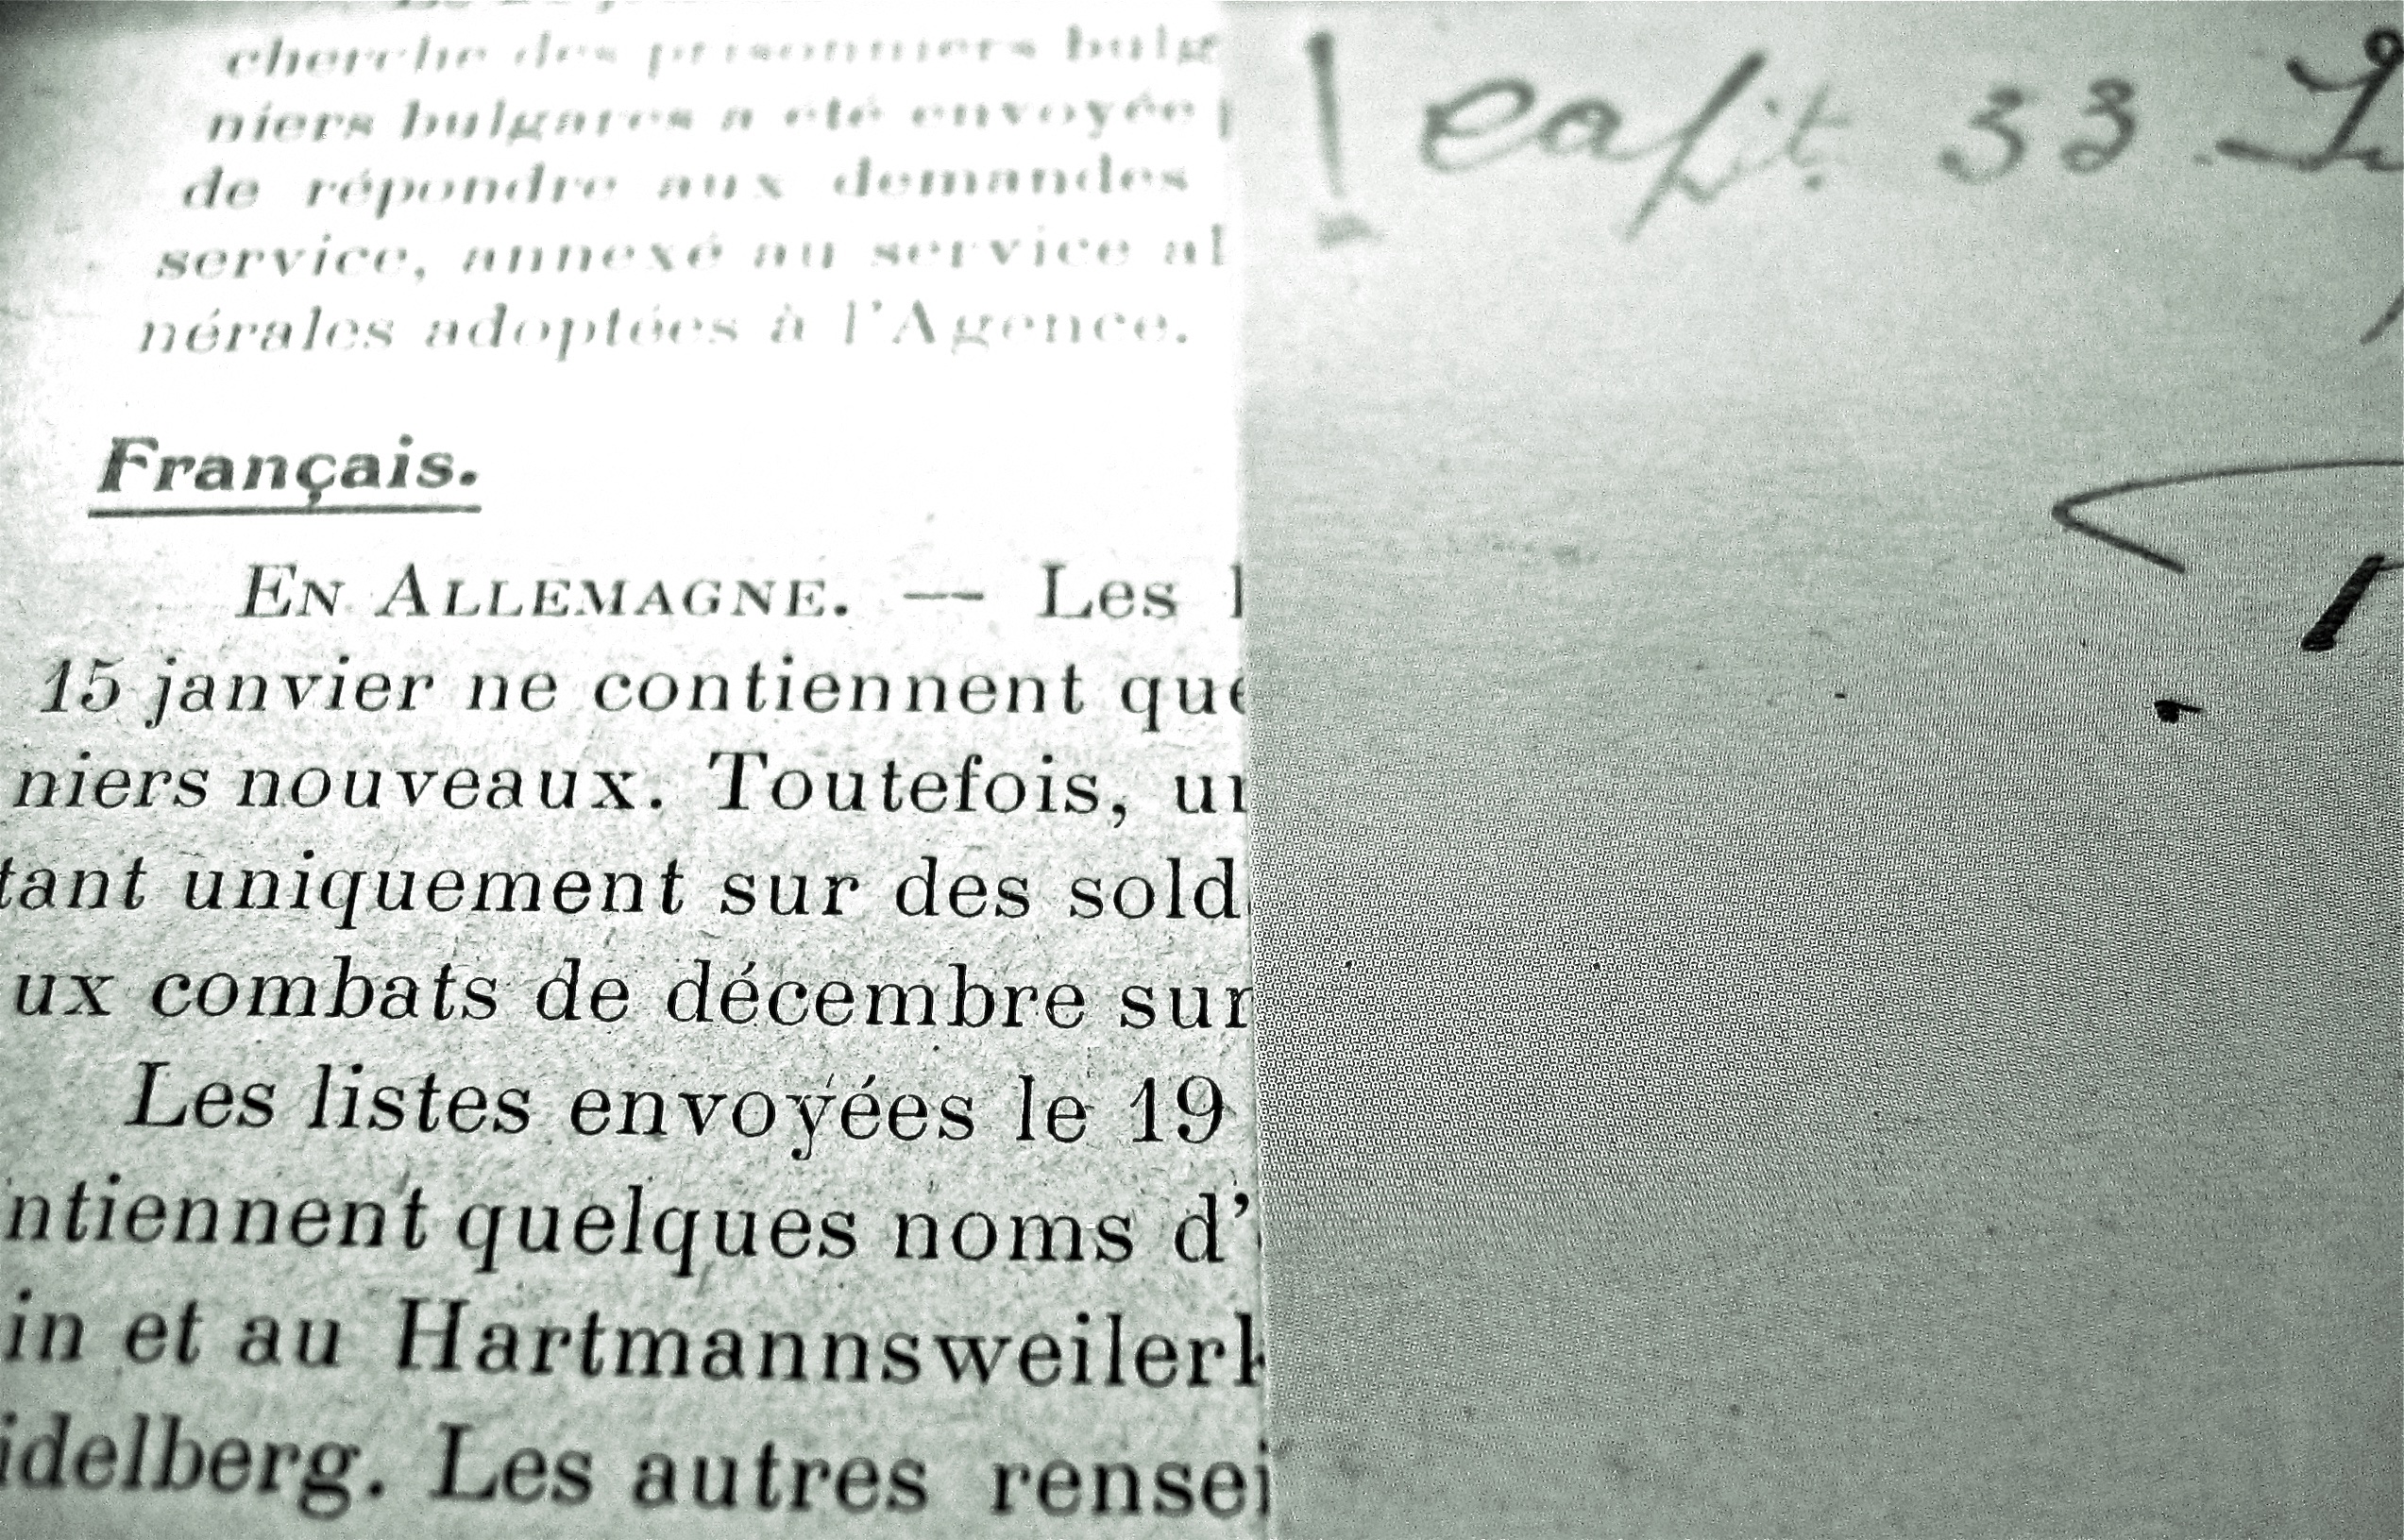 cherche des prisonniers bulg
niers bulgares a été envoyée
de répondre aux demandes
service, annexé au service al
nérales adoptées à l'Agence.
Français.
EN ALLEMAGNE. — Les
15 janvier ne contiennent que
niers nouveaux. Toutefois, un
tant uniquement sur des sold
ux combats de décembre sur
Les listes envoyées le 19
ntiennent quelques noms d'
in et au Hartmannsweilerk
idelberg. Les autres rensei
! capit. 33